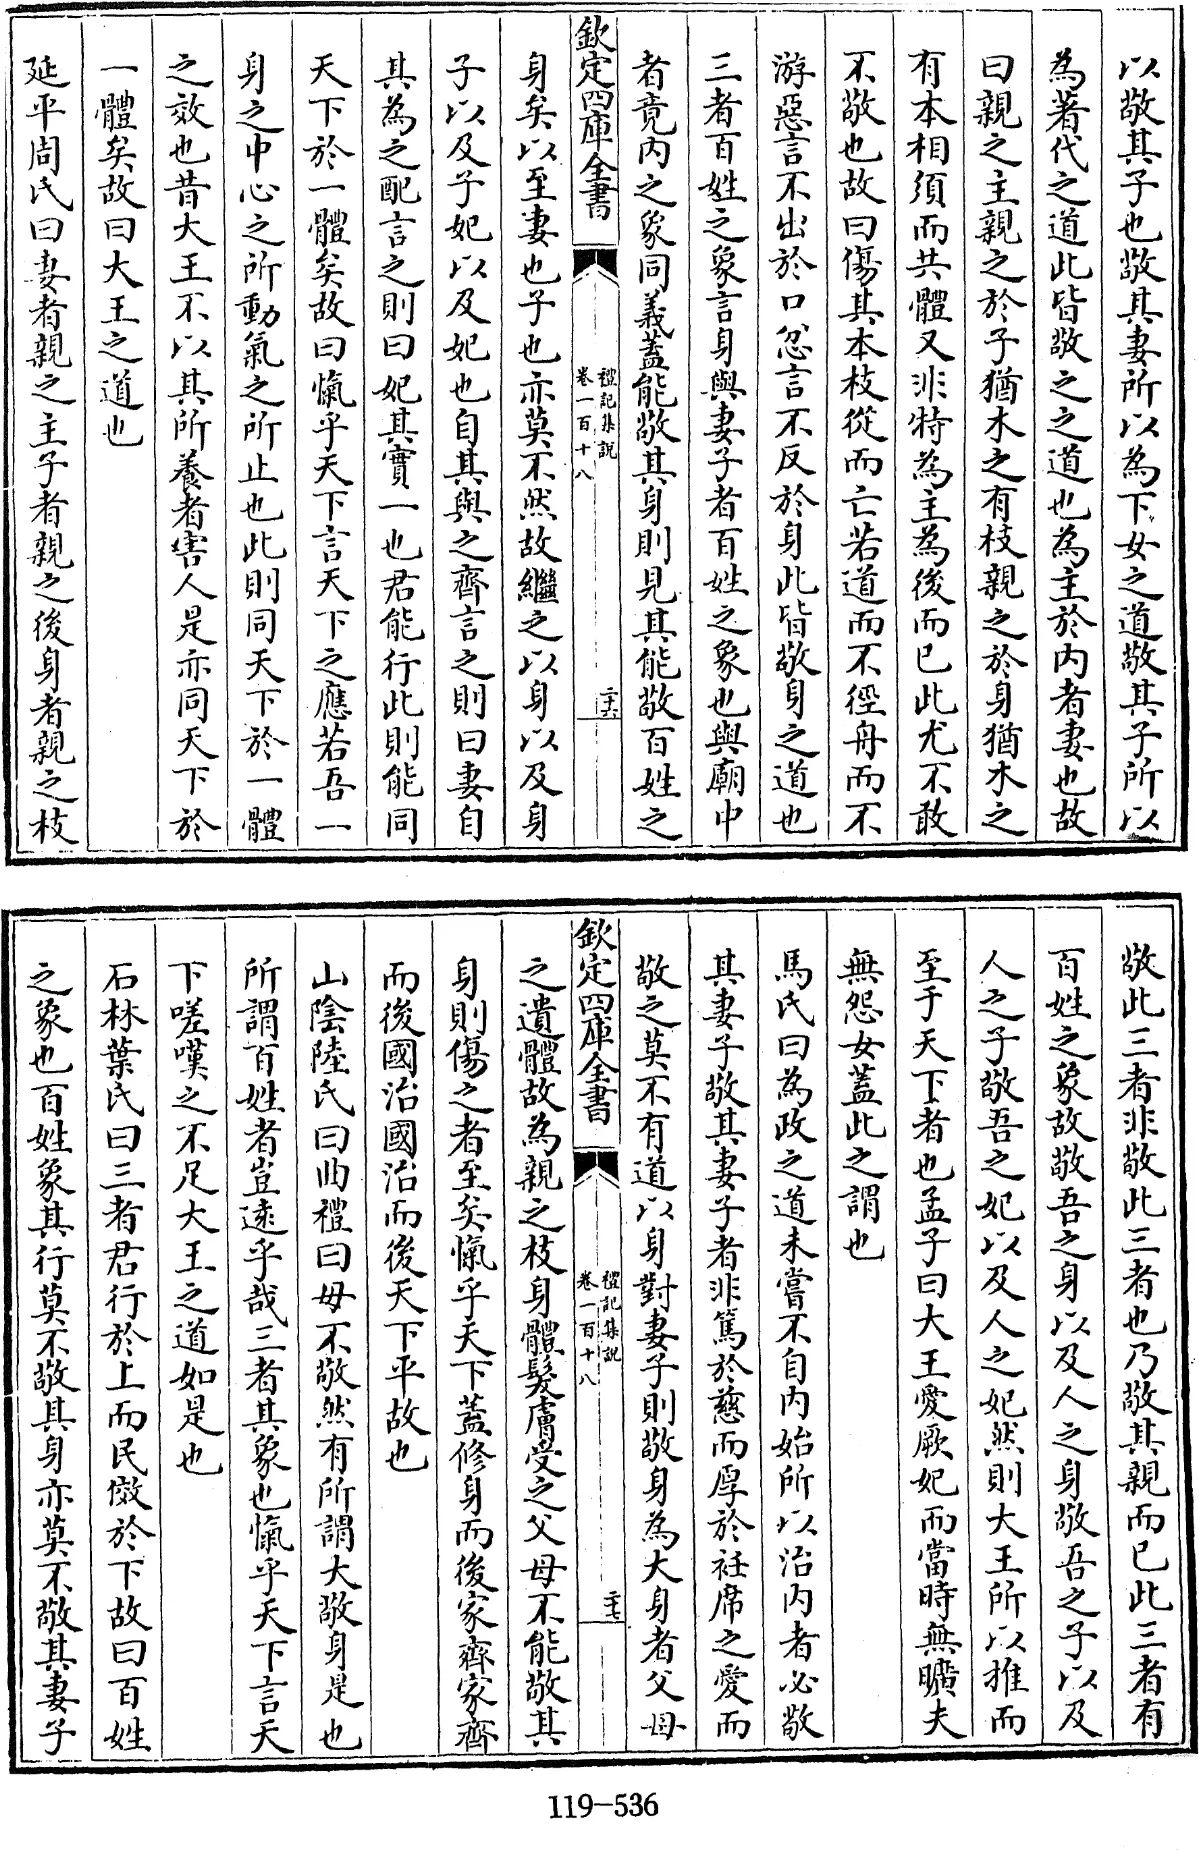 以敬其子也敬其妻所以為下女之道敬其子所以
為著代之道此皆敬之之道也為主於内者妻也故
曰親之主親之於子猶木之有枝親之於身猶木之
有本相須而共體又非特為主為後而已此尤不敢
不敬也故曰傷其本枝從而亡若道而不徑舟而不
游惡言不出於口忿言不反於身此皆敬身之道也
三者百姓之象言身與妻子者百姓之象也與廟中
者竟内之象同義蓋能敬其身則見其能敬百姓之
欽定四庫全書
禮記集說
卷一百十八
二十六
身矣以至妻也子也亦莫不然故繼之以身以及身
子以及子妃以及妃也自其與之齊言之則曰妻自
其為之配言之則曰妃其實一也君能行此則能同
天下於一體矣故曰愾乎天下言天下之應若吾一
身之中心之所動氣之所止也此則同天下於一體
之效也昔大王不以其所養者害人是亦同天下於
一體矣故曰大王之道也
延平周氏曰妻者親之主子者親之後身者親之枝
敬此三者非敬此三者也乃敬其親而已此三者有
百姓之象故敬吾之身以及人之身敬吾之子以及
人之子敬吾之妃以及人之妃然則大王所以推而
至于天下者也孟子曰大王愛厥妃而當時無曠夫
無怨女蓋此之謂也
馬氏曰為政之道未嘗不自内始所以治内者必敬
其妻子敬其妻子者非篤於慈而厚於衽席之愛而
敬之莫不有道以身對妻子則敬身為大身者父母
欽定四庫全書
禮記集說
卷一百十八
二十七
之遺體故為親之枝身體髮膚受之父母不能敬其
身則傷之者至矣愾乎天下蓋修身而後家齊家齊
而後國治國治而後天下平故也
山陰陸氏曰曲禮曰毋不敬然有所謂大敬身是也
所謂百姓者豈遠乎哉三者其象也愾乎天下言天
下嗟嘆之不足大王之道如是也
石林葉氏曰三者君行於上而民傚於下故曰百姓
之象也百姓象其行莫不敬其身亦莫不敬其妻子
119-536